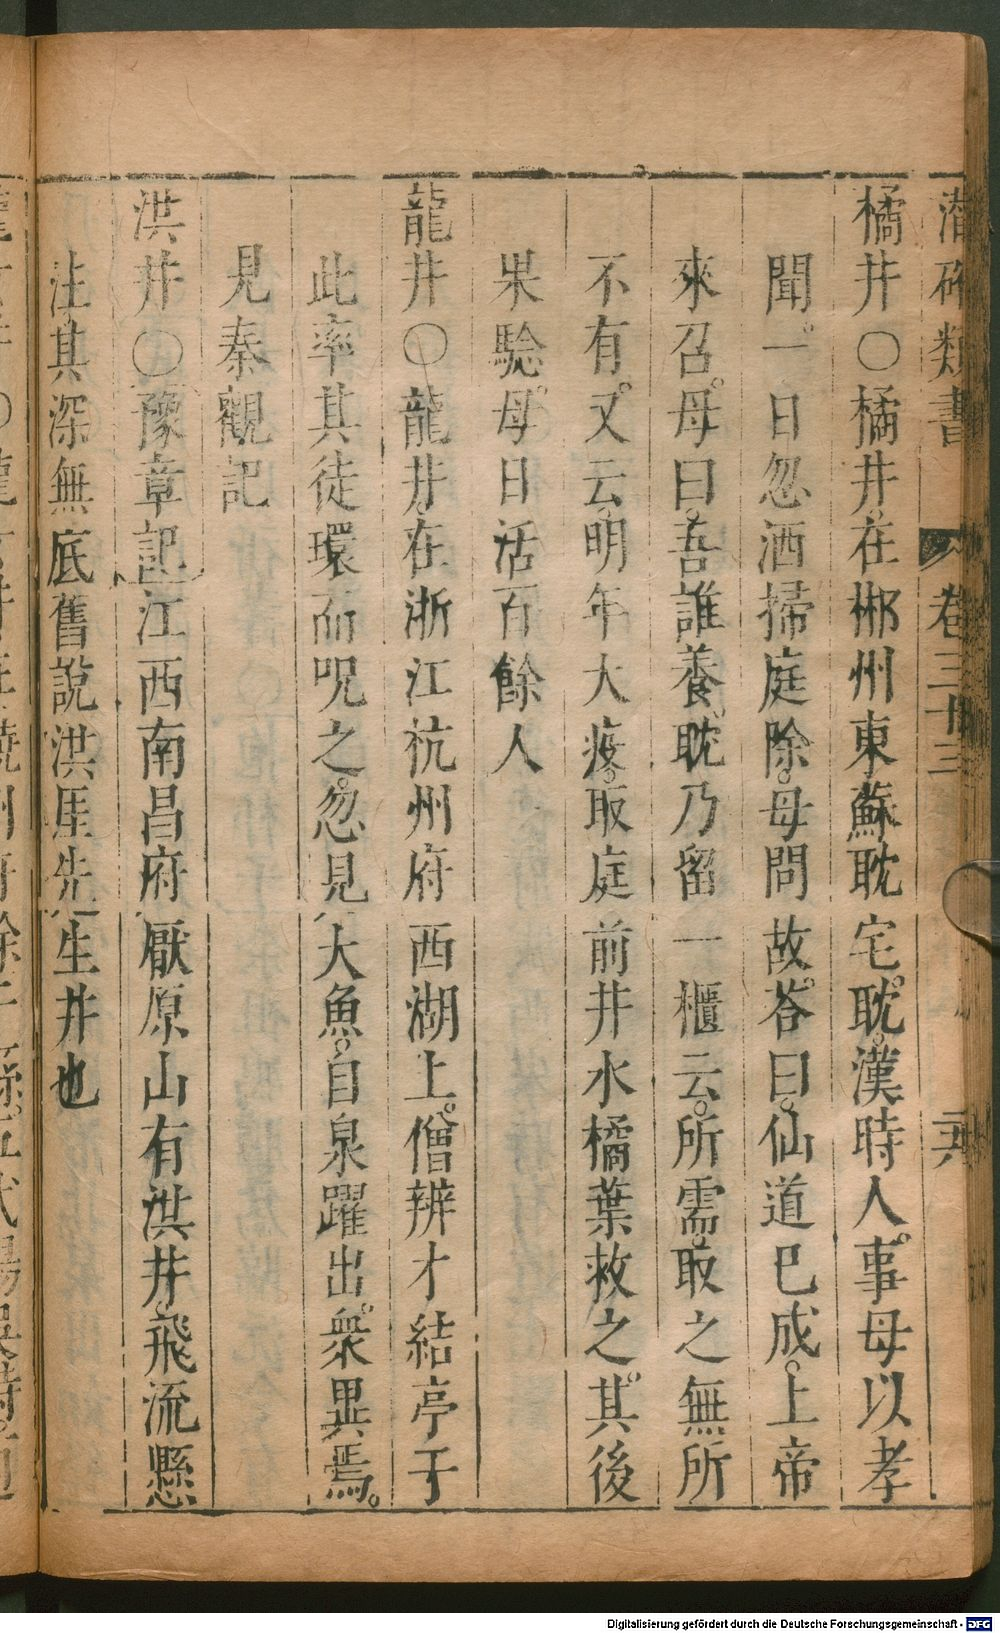 潛確類書 卷三十三 二六
橘井〇橘井。在郴州東蘇耽宅。耽。漢時人。事母以孝
聞。一日忽洒掃庭除。母問故。荅曰。仙道已成。上帝
來召。母曰。吾誰養。耽乃留一櫃云。所需。取之無所
不有。又云。明年大疫。取庭前井水橘葉救之。其後
果騐。母日活百餘人
龍井〇龍井。在浙江杭州府西湖上。僧辨才結亭于
此率其徒環而呪之。忽見大魚。自泉躍出。衆異焉。
見秦觀記
洪井〇豫章記江西南昌府厭原山有洪井。飛流懸
注。其深無底舊說洪厓先生井也
Digitalisierung gefördert durch die Deutsche Forschungsgemeinschaft - DFG